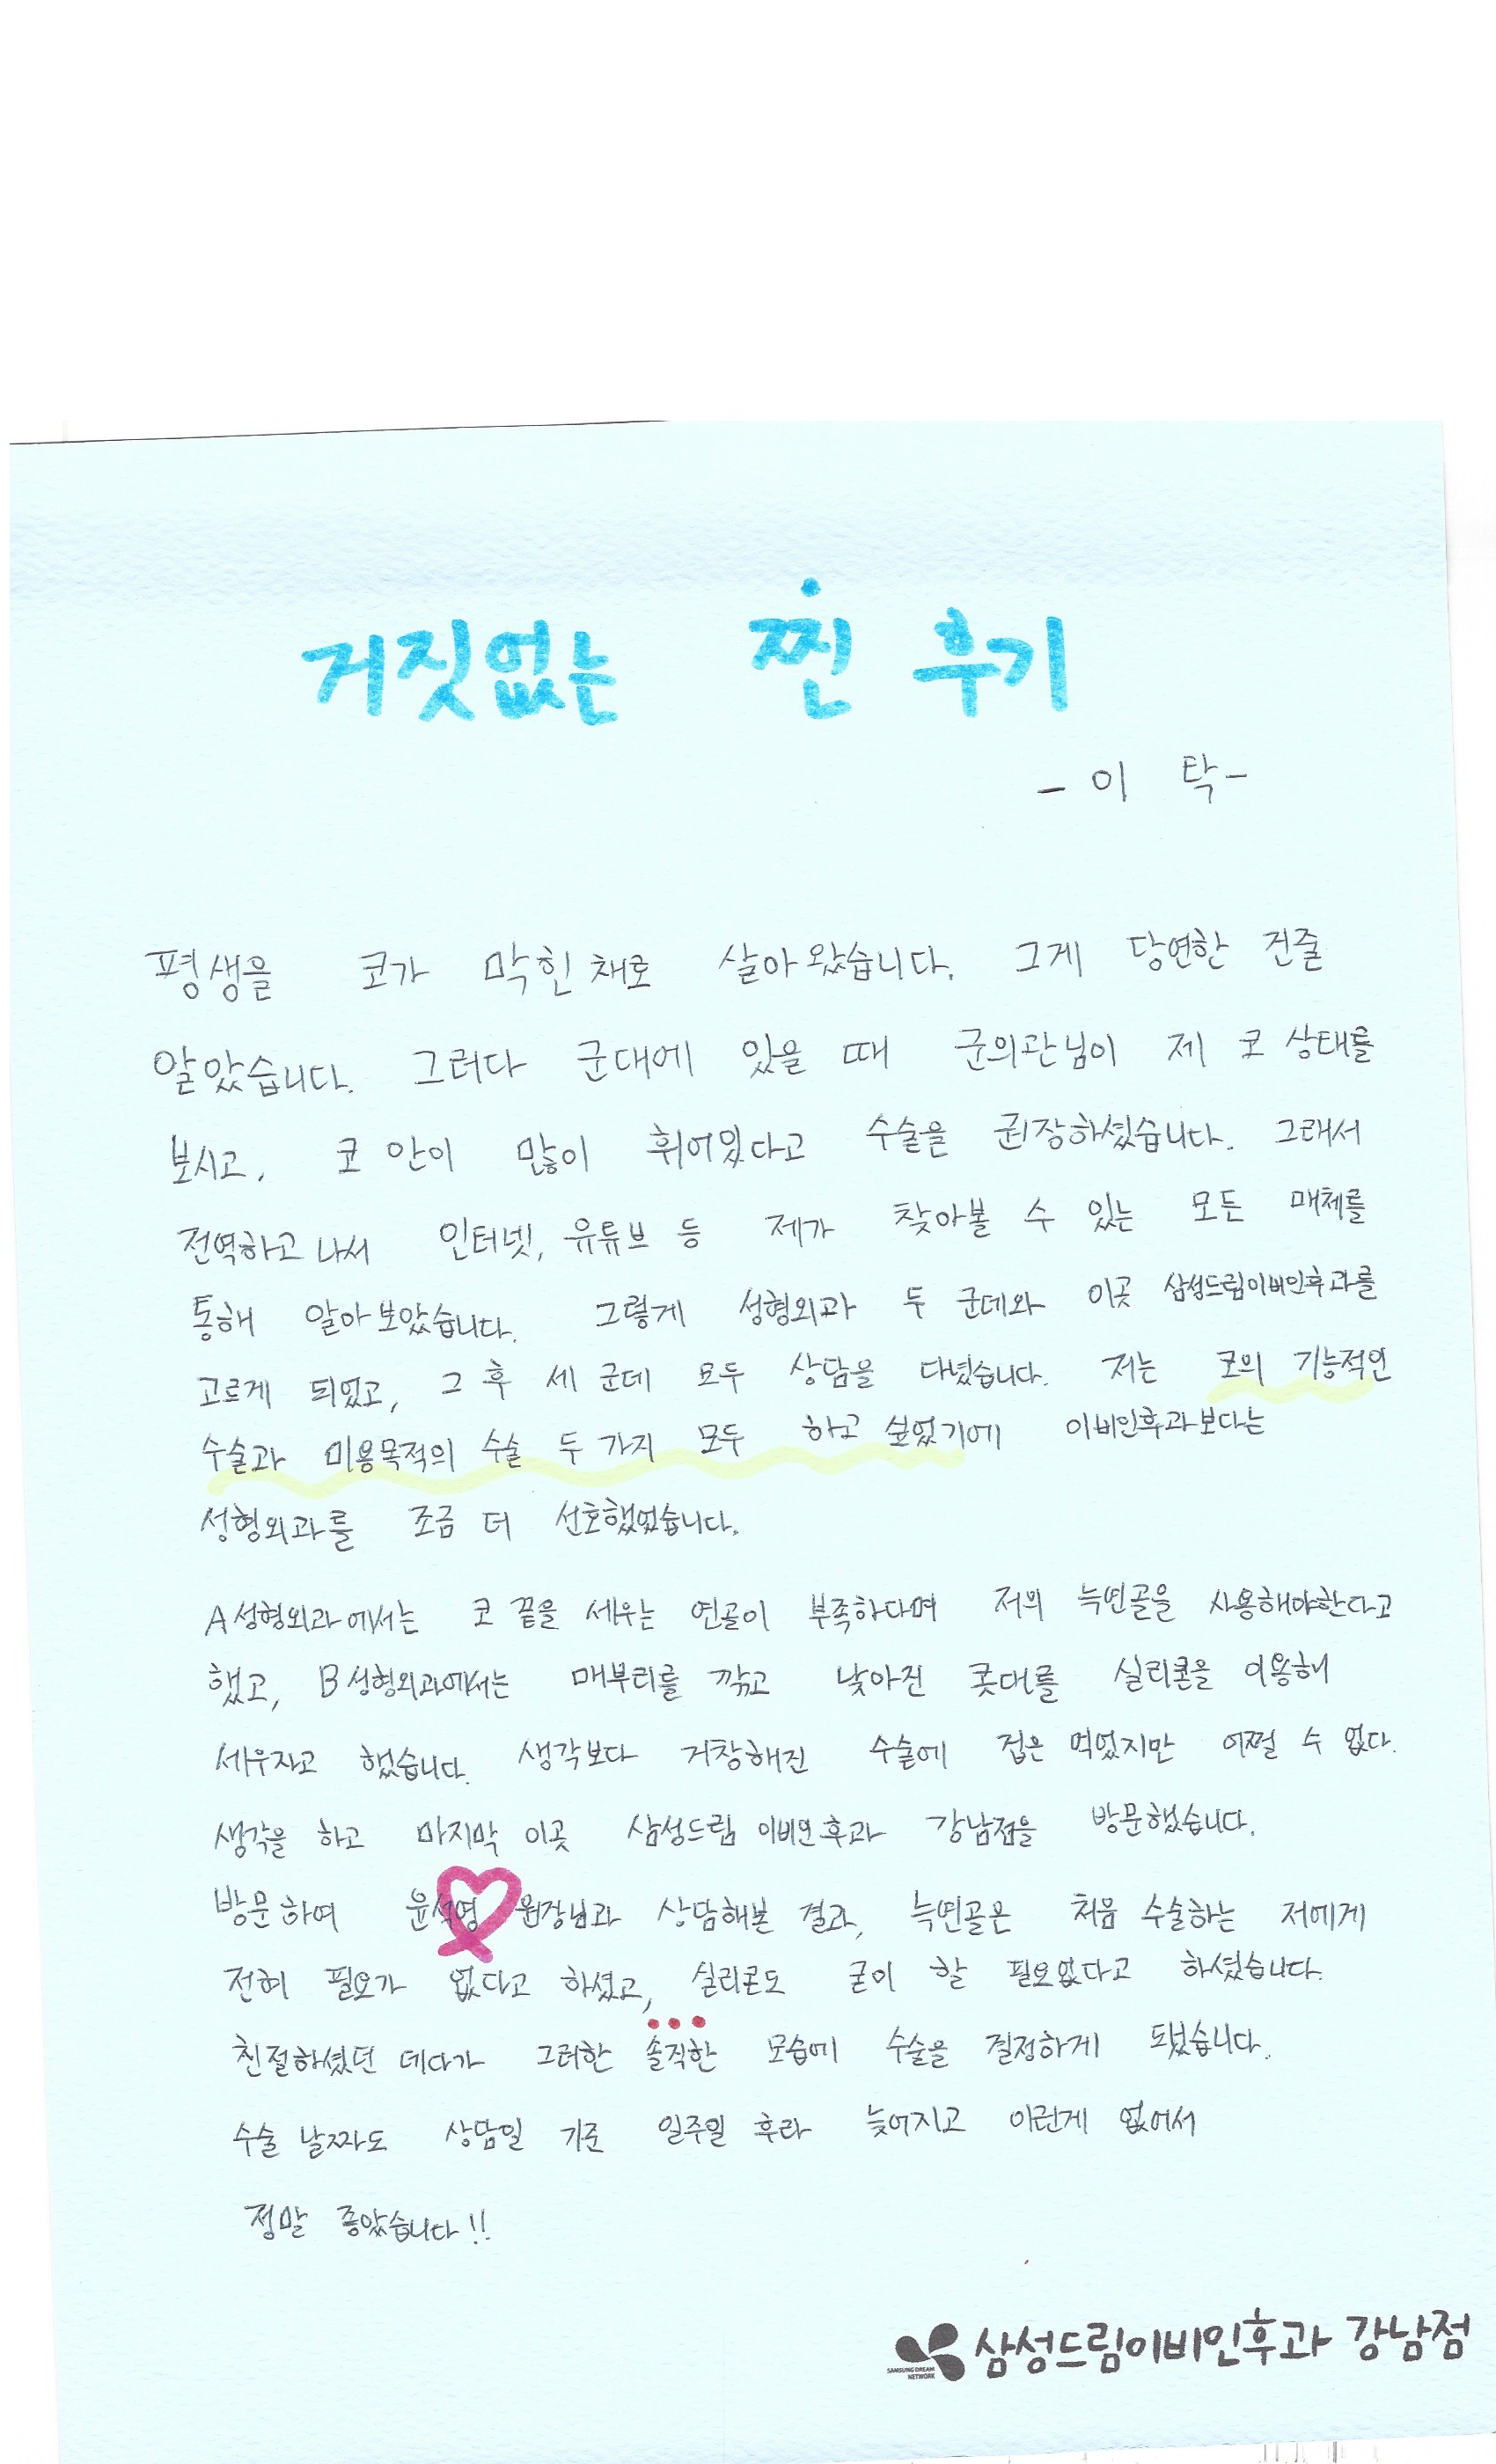 거짓없는 찐 후기
- 이 탁 -
평생을 코가 막힌채로 살아왔습니다. 그게 당연한 건줄
알았습니다. 그러다 군대에 있을 때 군의관님이 제 코 상태를
보시고, 코 안이 많이 휘어있다고 수술을 권장하셨습니다. 그래서
전역하고 나서 인터넷, 유튜브 등 제가 찾아볼 수 있는 모든 매체를
통해 알아보았습니다. 그렇게 성형외과 두 군데와 이곳 삼성드림이비인후과를
고르게 되었고, 그 후 세 군데 모두 상담을 다녔습니다. 저는 코의 기능적인
수술과 미용목적의 수술 두 가지 모두 하고 싶었기에 이비인후과보다는
성형외과를 조금 더 선호했었습니다.
A성형외과에서는 코 끝을 세우는 연골이 부족하다며 저의 늑연골을 사용해야한다고
했고, B성형외과에서는 매부리를 깎고 낮아진 콧대를 실리콘을 이용해
세우자고 했습니다. 생각보다 거창해진 수술에 겁은 먹었지만 어쩔 수 없다.
생각을 하고 마지막 이곳 삼성드림 이비인후과 강남점을 방문했습니다.
방문하여 윤석영 원장님과 상담해본 결과, 늑연골은 처음 수술하는 저에게
전혀 필요가 없다고 하셨고, 실리콘도 굳이 할 필요없다고 하셨습니다.
친절하셨던 데다가 그러한 솔직한 모습에 수술을 결정하게 됐습니다.
수술 날짜도 상담일 기준 일주일 후라 늦어지고 이런게 없어서
정말 좋았습니다!!
SAMSUNG DREAM NETWORK 삼성드림이비인후과 강남점